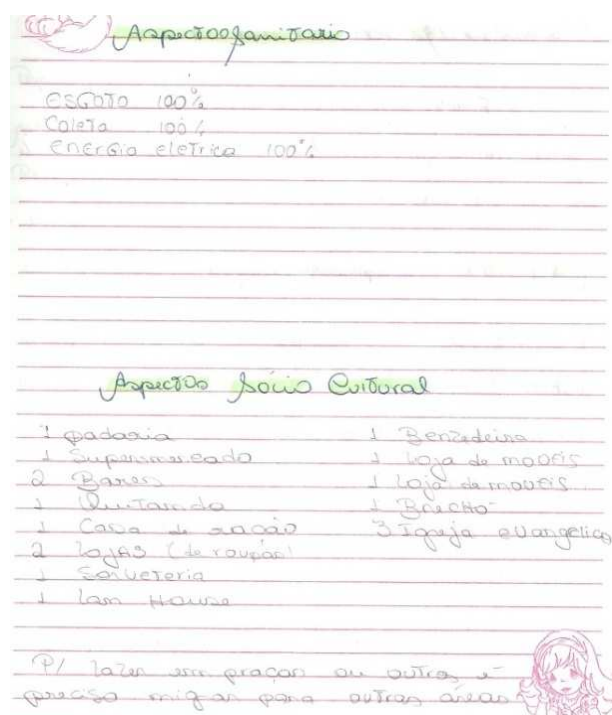 Aspectos Sanitario
ESGOTO 100%
Coleta 100%
energia eletrica 100%
Aspectos Sócio Cultural
1 padaria
1 Supermercado
2 Bares
1 Quitanda
1 Casa de ração
2 lojas (de roupas)
1 Sorveteria
1 lan House
1 Benzedeira
1 loja de moveis
1 loja de moveis
1 Brechó
3 Igreja evangelica
P/ lazer em praças ou outros é
preciso migrar para outras áreas